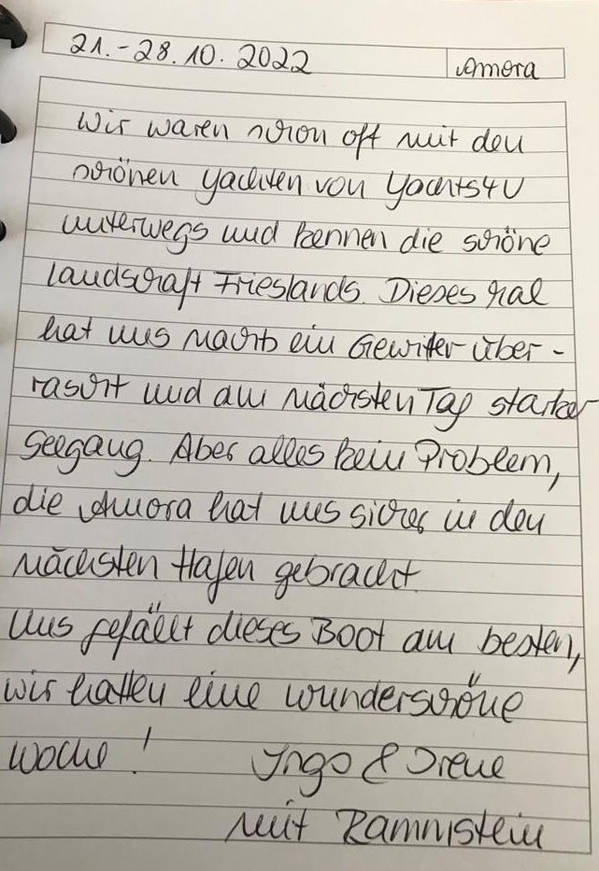 21.-28.10.2022 Amora
Wir waren schon oft mit den
schönen Yachten von Yachts4U
unterwegs und kennen die schöne
Landschaft Frieslands. Dieses Mal
hat uns nachts ein Gewitter über-
rascht und am nächsten Tag starker
Seegang. Aber alles kein Problem,
die Amora hat uns sicher in den
nächsten Hafen gebracht.
Uns gefällt dieses Boot am besten,
wir hatten eine wunderschöne
Woche! Ingo & Irene
mit Rammstein